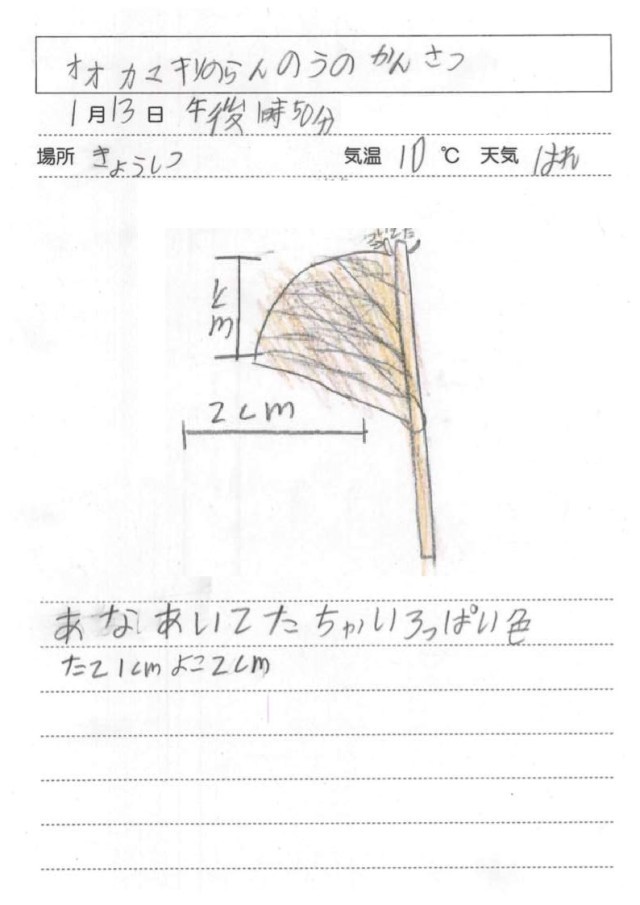 オオカマキリのらんのうのかんさつ
1月13日 午後1時50分
場所 きょうしつ 気温 10 ℃ 天気 はれ
1cm
2cm
あなあいてたちゃいろっぱい色
たて1cmよこ2cm